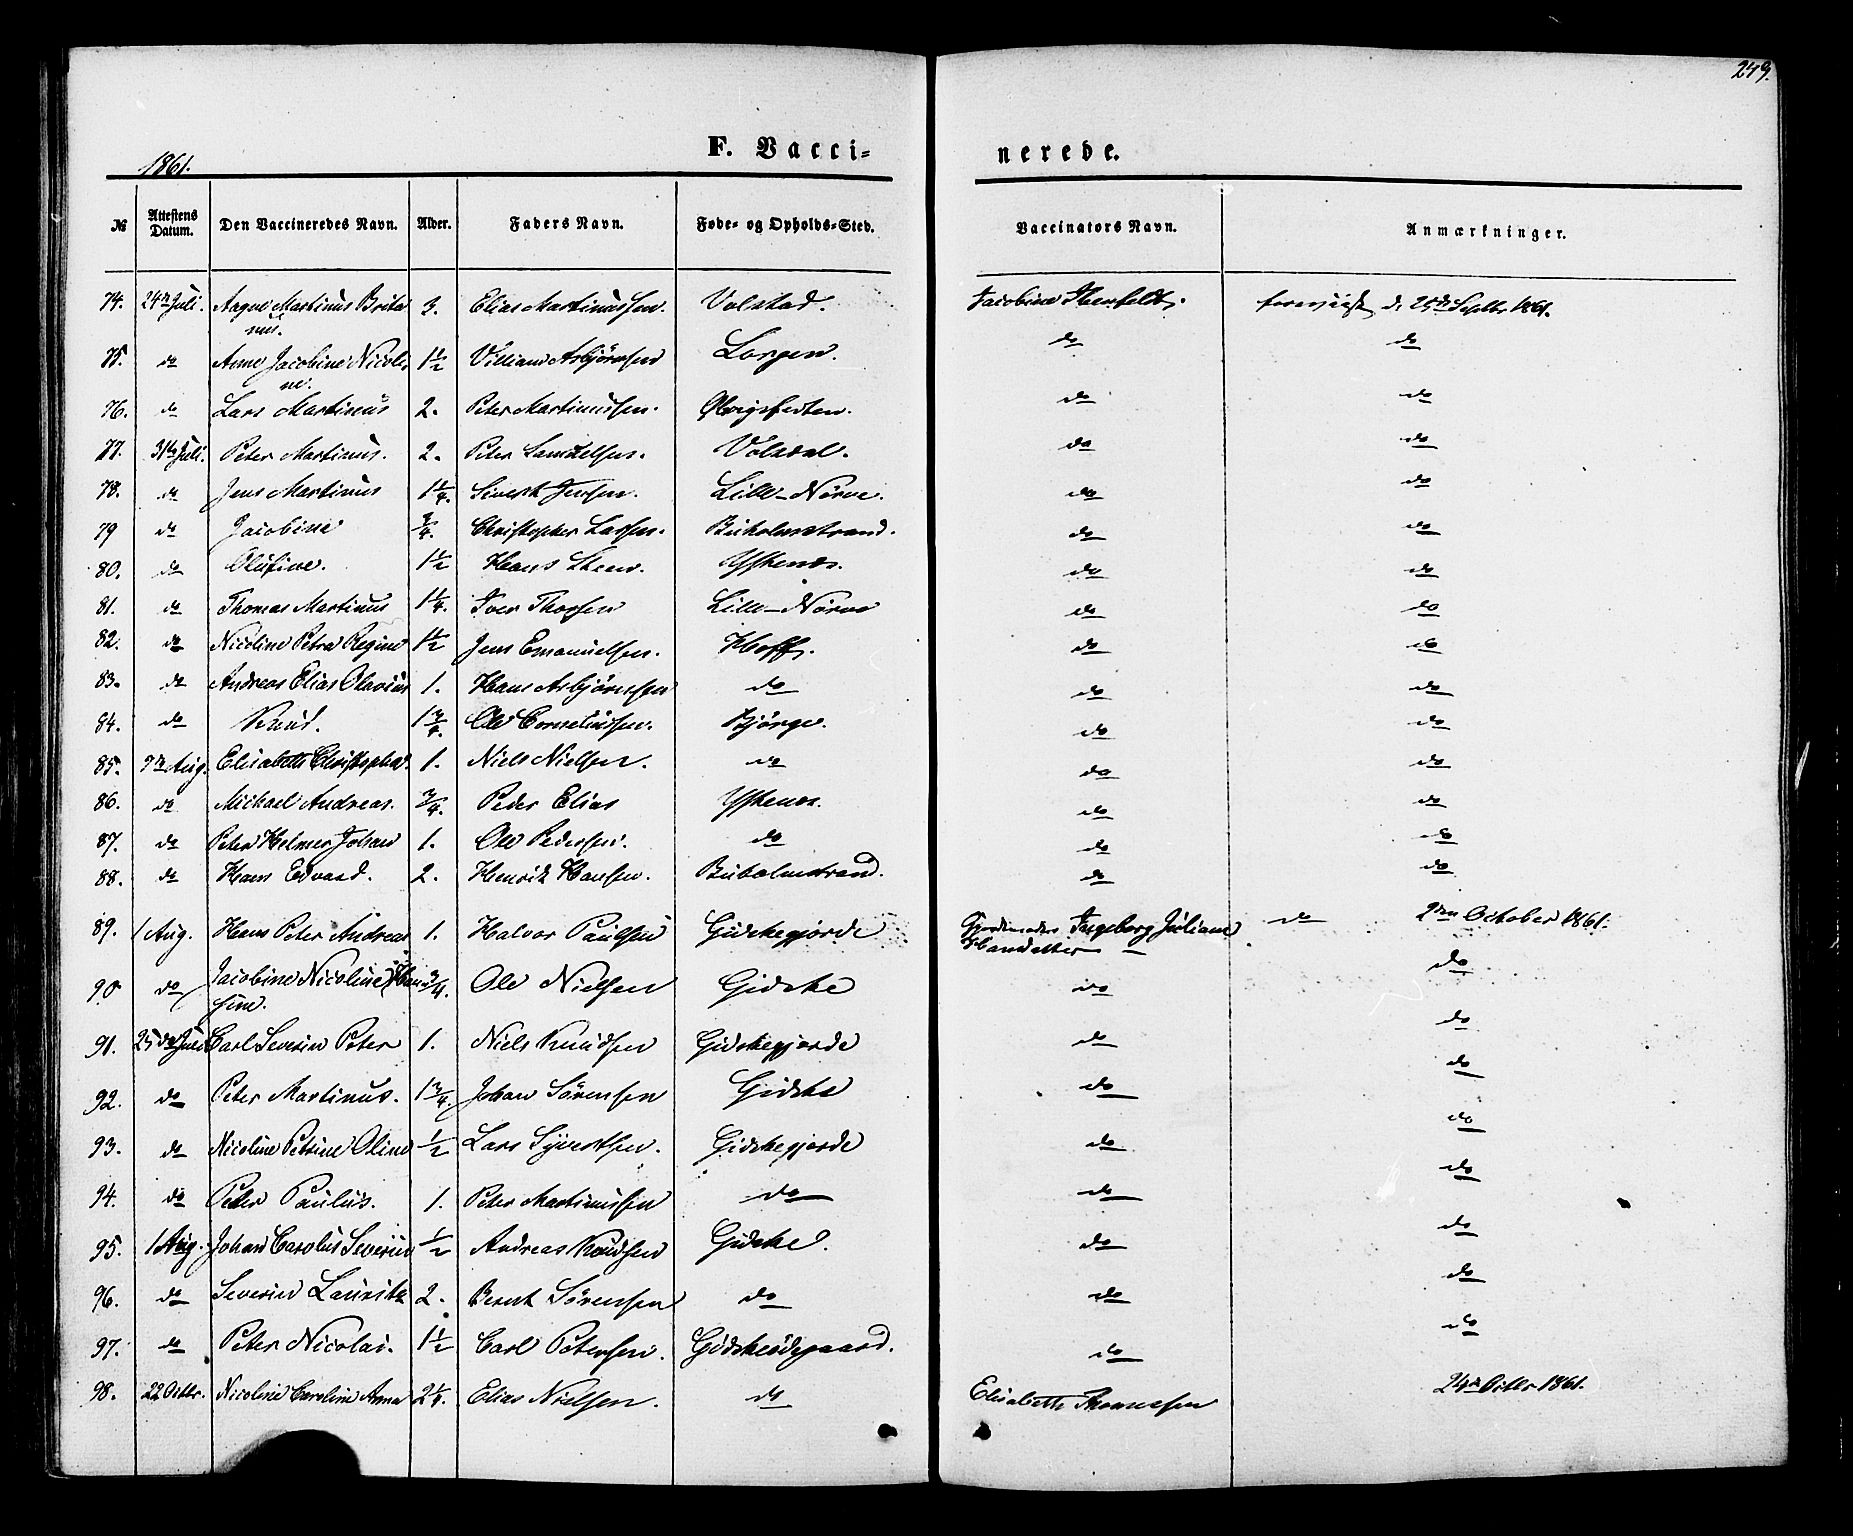 249.
1861.
F. Vacci-
nerede.
No Attestens Datum. Den Vaccineredes Navn. Alder. Faders Navn. Føde- og Opholds-Sted. Vaccinators Navn. Anmærkninger.
74. 24de Juli. Martinus 3. Elias Martinussen. Volstad. Jacobine do 25de Septbr 1861.
75. do Anne Jacobine Nicoli 1 1/2 Villiam Asbjörnsen Lorgen. do do
ne.
76. do Lars Martinus 2. Peter Martinussen. do do
77. 31te Juli. Peter Martinus. 2. Peter Samuelsen. Volsdal. do do
78. do Jens Martinus 1 1/4. Sivert Jensen. Lille-Nörve. do do
79 do Jacobine 3/4. Christopher Larsen. Buholmstrand. do do
80. do Olufine. 1 1/2 Hans Steen. Ystenæs. do do
81. do Thomas Martinus 1 1/4. Iver Thorsen Lille-Nörve do do
82. do Nicoline Petra Regine 1 1/2 Jens Emanuelsen. Hoff. do do
83. do Andreas Elias Olavius 1. Hans Asbjörnsen do do do
84. do Knud. 1 3/4. Ole Corneliussen. Bjørge. do do
85. 9de Aug. Elisabeth Christopha. 1. Niels Nielsen. do do do
86. do Michael Andreas. 3/4. Peder Elias Ystenæs. do do
87. do Peter Helmer Johan 1. Ole Pedersen. do do do
88. do Hans Edvard. 2. Henrik Hansen. Buholmstrand. do do
89. 1 Aug. Hans Peter Andreas 1. Halvor Paulsen Gidskegjerde Gjordemoder Ingeborg Juliane do 2den October 1861.
Hansdatter
90 do Jacobine Nicoline Han 3/4. Ole Nielsen Gidske do do
sine.
91. 25de Juli Carl Severin Peter 1. Niels Knudsen Gidskegjerde do do
92. do Peter Martinus. 1 3/4. Johan Sörensen Gidske do do
93. do Nicoline Petrine Oline 1/2 Lars Syvertsen. Gidskegjerde do do
94. do Peter Paulus. 1. Peter Martinussen do do do
95. 1 Aug. Johan Carolus Severin 1/2 Andreas Knudsen Gidske. do do
96. do Severin Lauritz 2. Bernt Sörensen do do do
97. do Peter Nicolai. 1 1/2 Carl Petersen. Gidskeödegaard. do do
98. 22 Octbr. Nicoline Caroline Anna 2 1/4. Elias Nielsen. do Elisabeth 24de Octbr 1861.